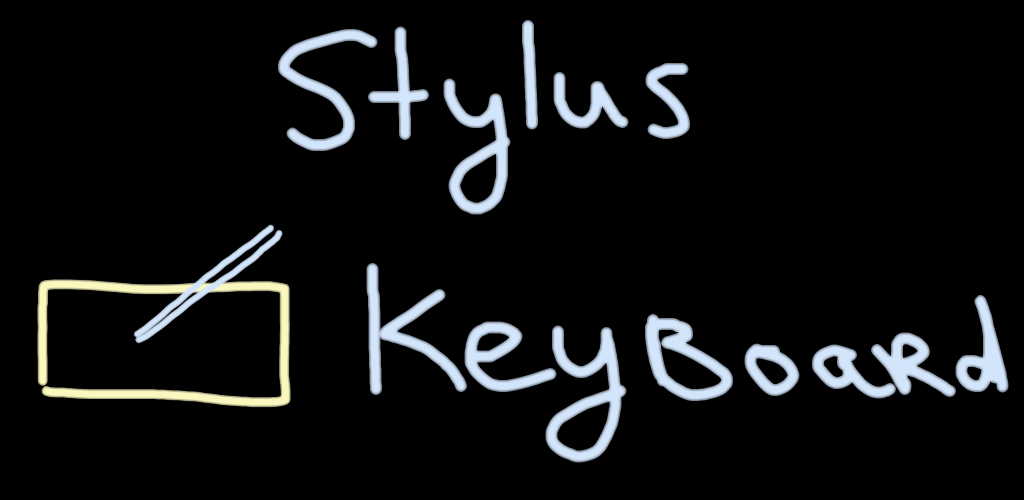 Stylus
KeyBoaRd